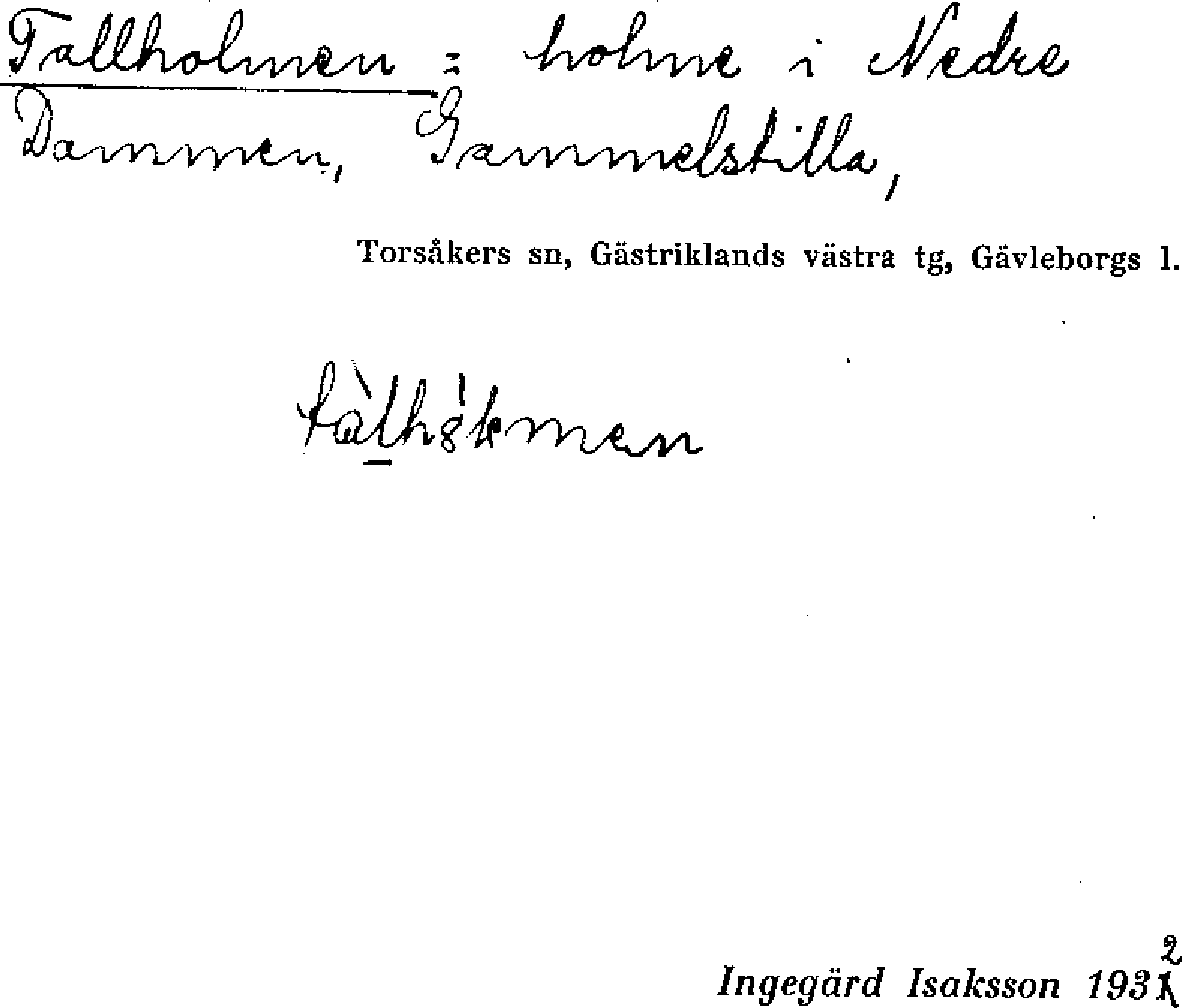 Tallholmen = holme i Nedre
Dammen, Gammelstilla,
Torsåkers sn, Gästriklands västra tg, Gävleborgs l.
Ingegärd Isaksson 1932